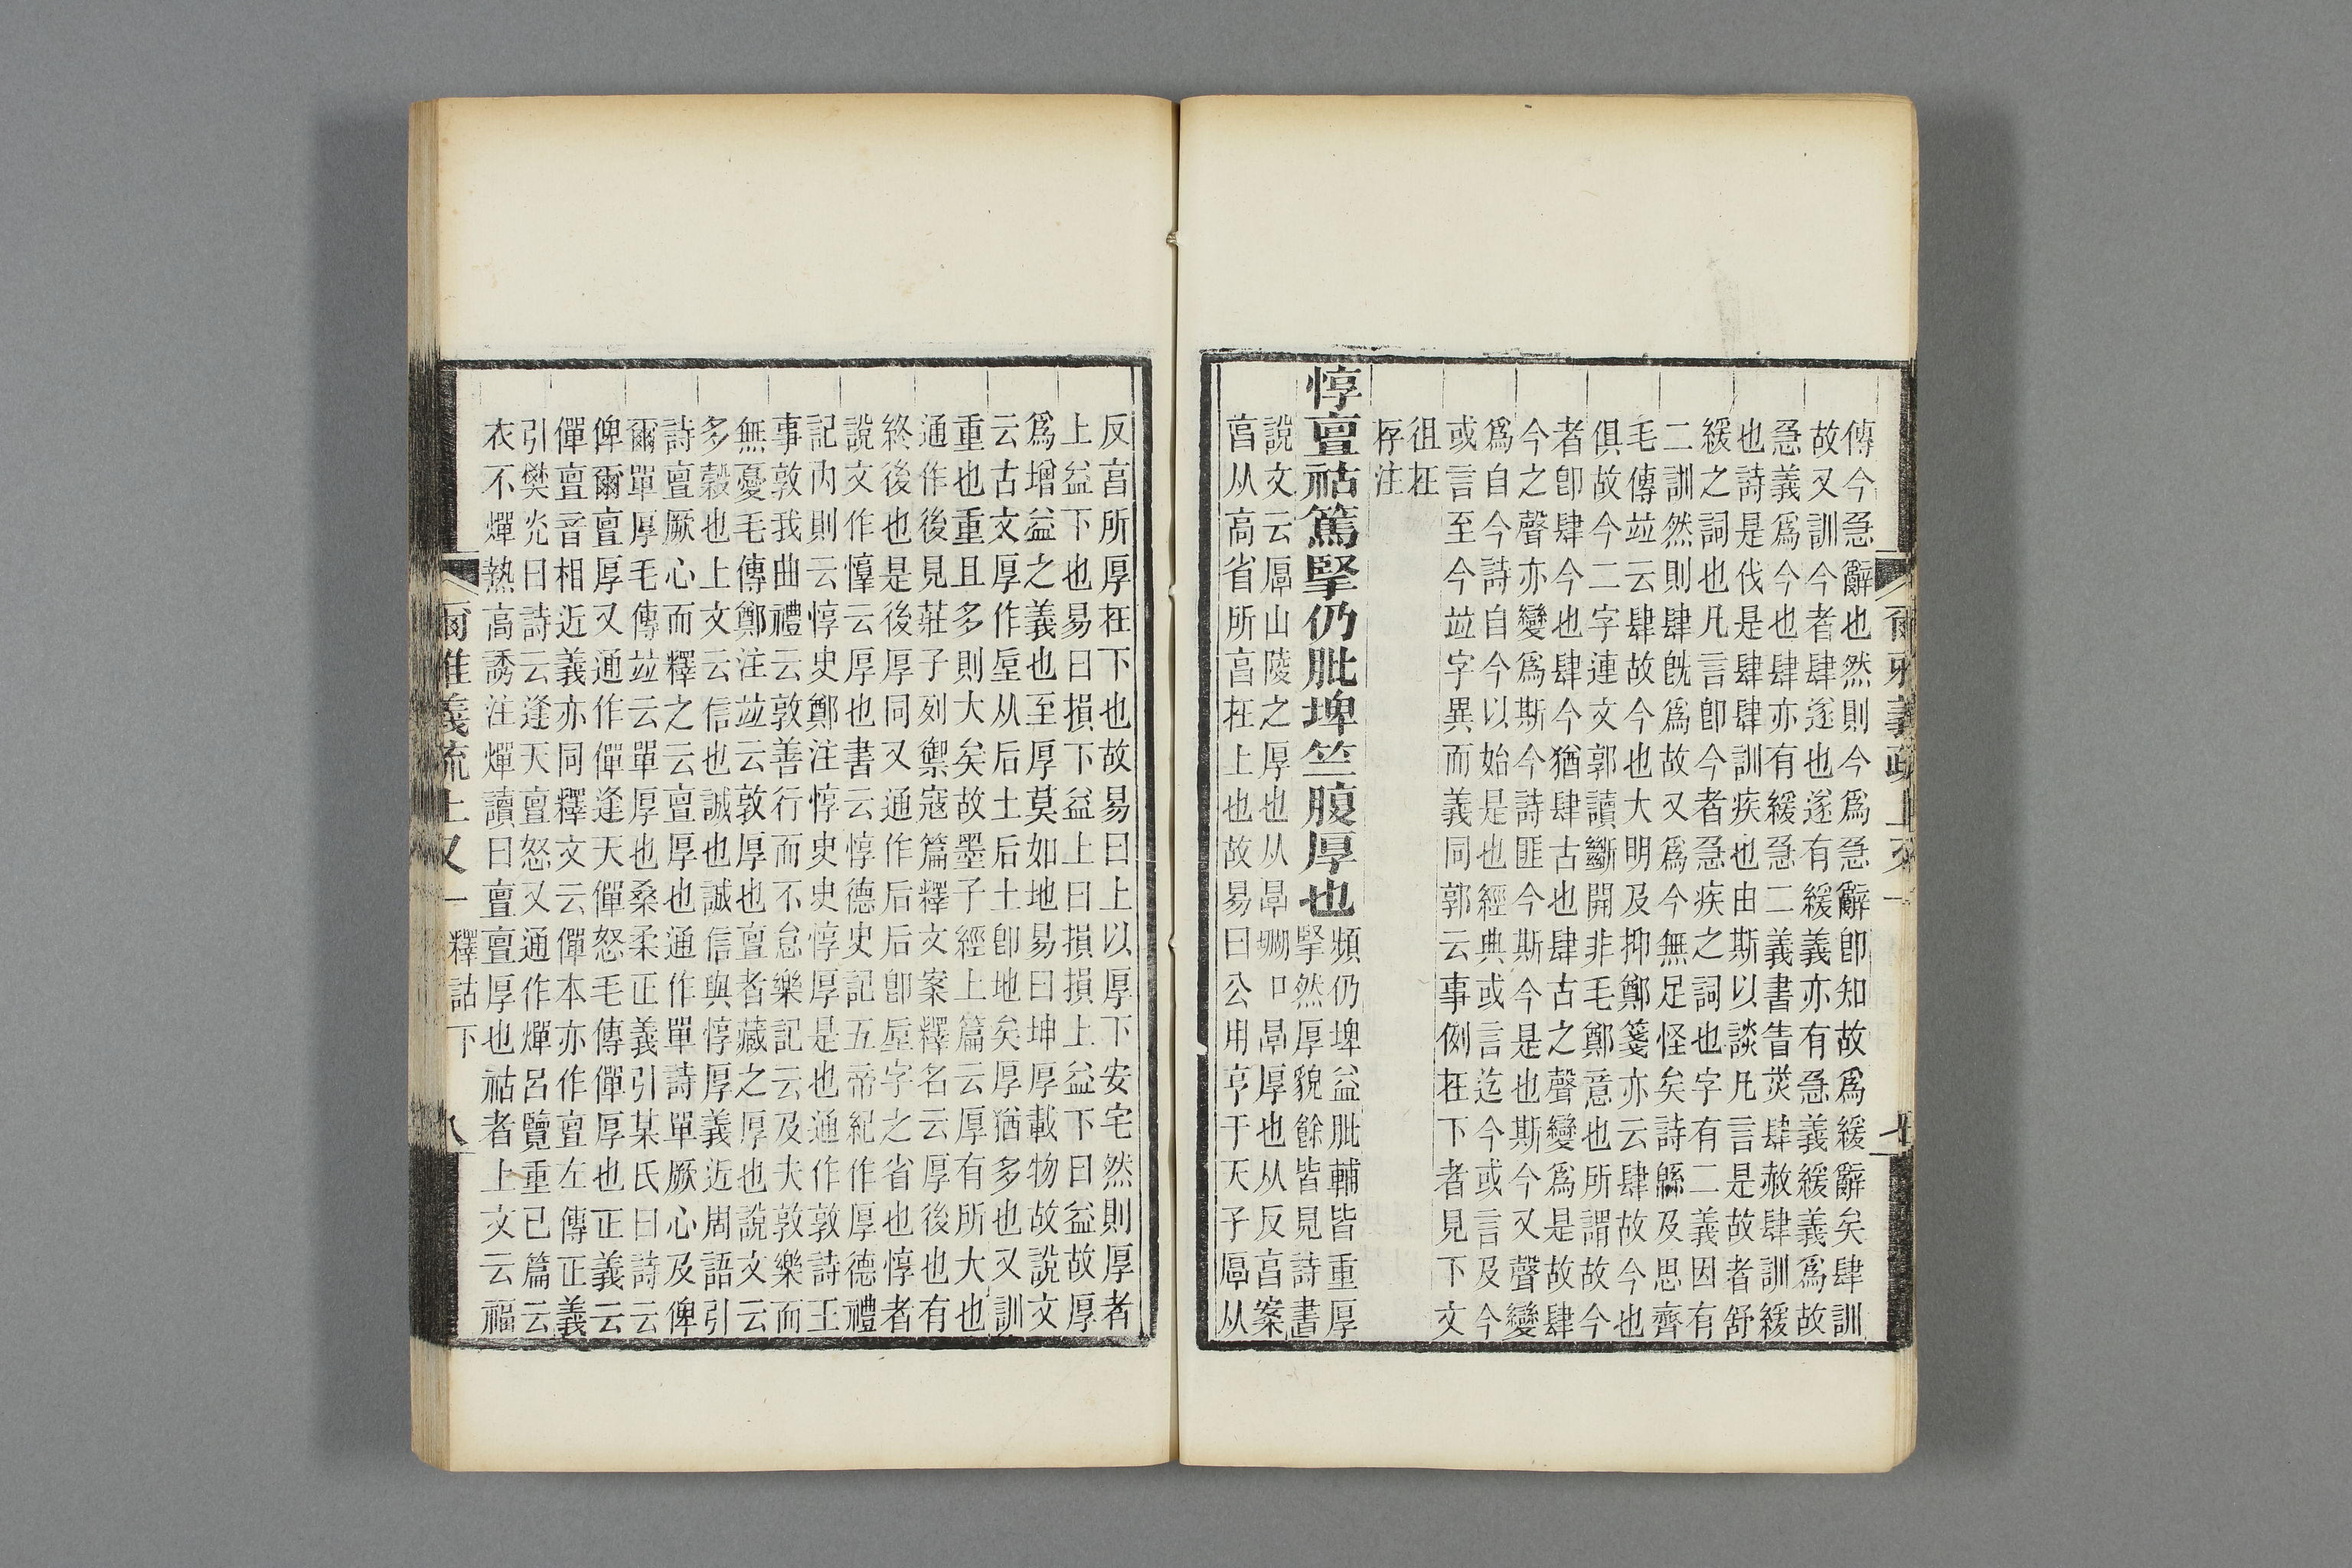 傳今急辭也然則今爲急辭卽知故爲緩辭矣肆訓
故又訓今者肆遂也遂有緩義亦有急義緩義爲故
急義爲今也肆亦有緩急二義書眚烖肆赦肆訓緩
也詩是伐是肆肆訓疾也由斯以談凡言是故者舒
緩之詞也凡言卽今者急疾之詞也字有二義因有
二訓然則肆旣爲故又爲今無足怪矣詩緜及思齊
毛傳竝云肆故今也大明及抑鄭箋亦云肆故今也
俱故今二字連文郭讀斷開非毛鄭意也所謂故今
者卽肆今也肆今猶肆古也肆古之聲變爲是故肆
今之聲亦變爲斯今詩匪今斯今是也斯今又聲變
爲自今詩自今以始是也經典或言迄今或言及今
或言至今竝字異而義同郭云事例在下者見下文
徂在
存注
惇亶祜篤掔仍肶埤竺腹厚也
頻仍埤益肶輔皆重厚
掔然厚貌餘皆見詩書
說文云厚山陵之厚也从㫗垹口㫗厚也从反亯案
亯从高省所亯在上也故易曰公用亨于天子厚从
反亯所厚在下也故易曰上以厚下安宅然則厚者
上益下也易曰損下益上曰損損上益下曰益故厚
爲增益之義也至厚莫如地易曰坤厚載物故說文
云古文厚作垕从后土后土卽地矣厚猶多也又訓
重也重且多則大矣故墨子經上篇云厚有所大也
通作後見莊子列禦寇篇釋文案釋名云厚後也有
終後也是後厚同又通作后后卽垕字之省也惇者
說文作惇云厚也書云惇德史記五帝紀作厚德禮
記內則云惇史鄭注惇史史惇厚是也通作敦詩王
事敦我曲禮云敦善行而不怠樂記云及夫敦樂而
無憂毛傳鄭注竝云敦厚也亶者藏之厚也說文云
多穀也上文云信也誠也誠信與惇厚義近周語引
詩亶厥心而釋之云亶厚也通作單詩單厥心及俾
爾單厚毛傳竝云單厚也桑柔正義引某氏曰詩云
俾爾亶厚又通作僤逢天僤怒毛傳僤厚也正義云
僤亶音相近義亦同釋文云僤本亦作亶左傳正義
引樊光曰詩云逢天亶怒又通作燀呂覽重已篇云
衣不燀熱高誘注燀讀曰亶亶厚也祜者上文云福
爾雅義疏上又一 釋詁下 八